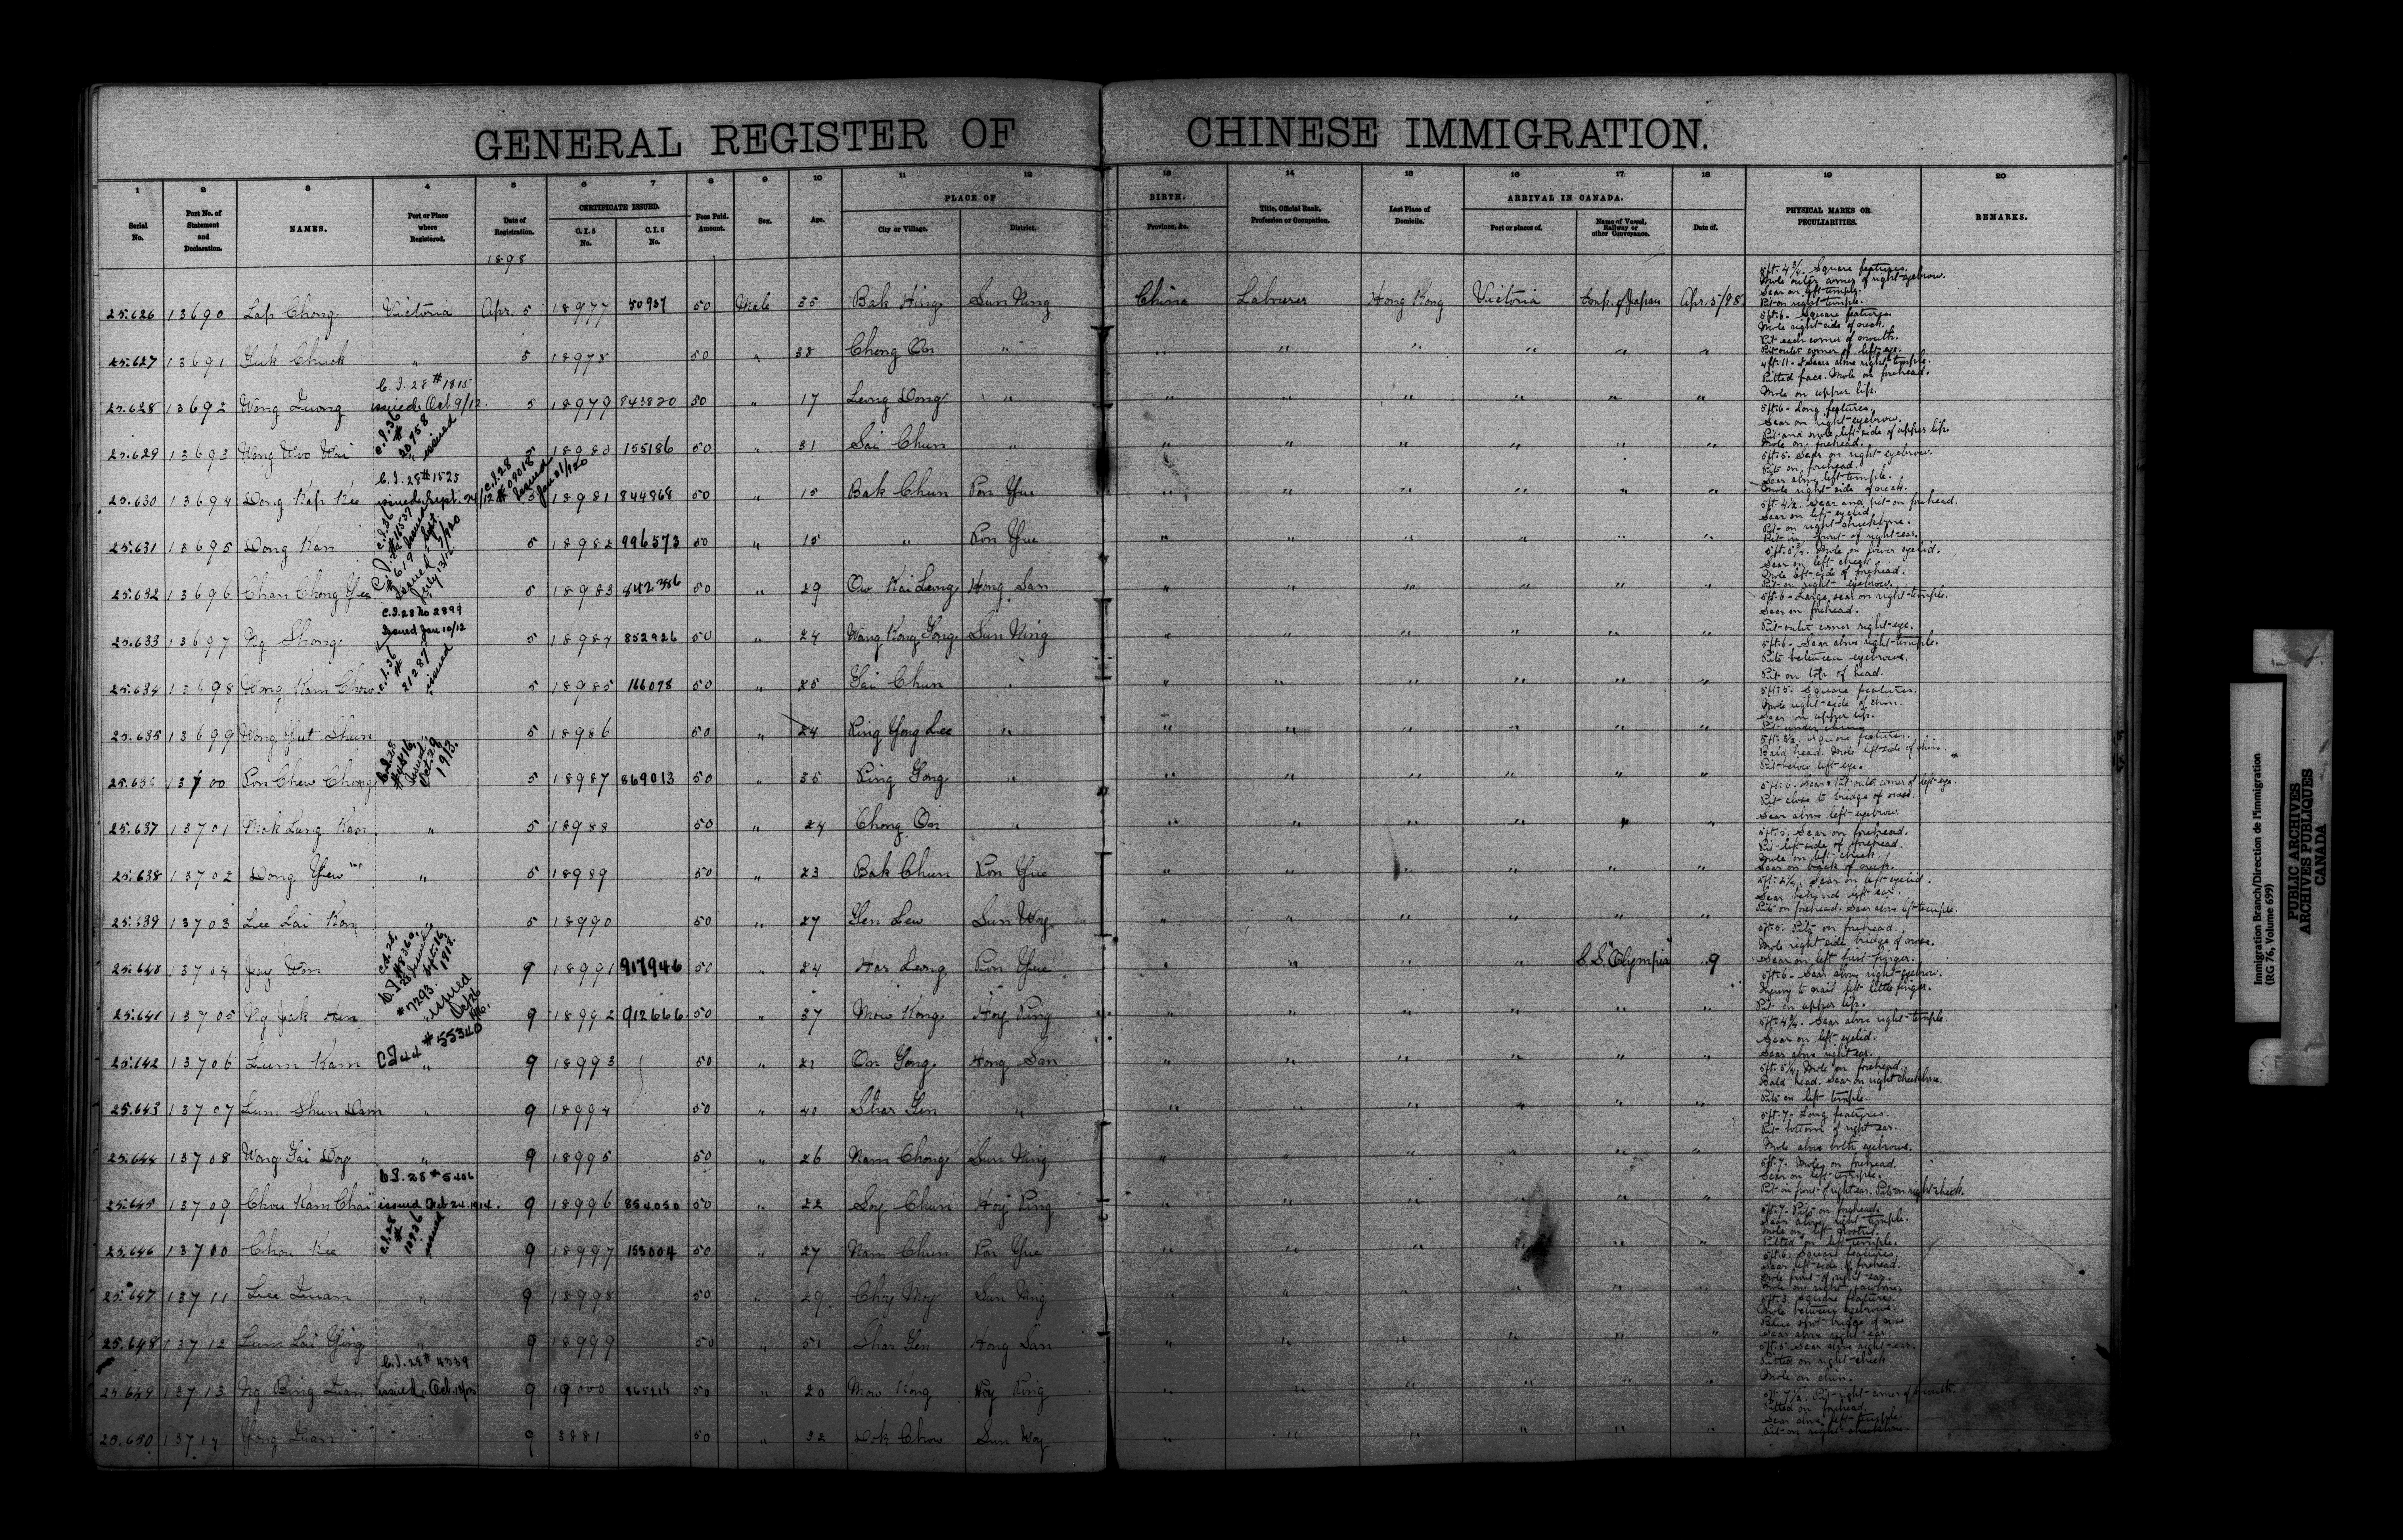 GENERAL REGISTER OF CHINESE IMMIGRATION.
1 2 3 4 5 6 7 8 9 10 11 12 13 14 15 16 17 18 19 20
Serial No. Port No. of Statement and Declaration. NAMES. Port or Place where Registered. Date of Registration. CERTIFICATE ISSUED. C.I.5 No. C.I.6 No. Fees Paid. Amount. Sex. Age. PLACE OF BIRTH. City or Village. District. Province, &c. Title, Official Rank, Profession or Occupation. Last Place of Domicile. ARRIVAL IN CANADA. Port or places of. Name of Vessel, Railway or other Conveyance. Date of. PHYSICAL MARKS OR PECULIARITIES. REMARKS.
1898
25.626 13690 Lap Chong Victoria Apr. 5 18977 50937 50 Male 35 Bak Hing Sun Ning China Labourer Hong Kong Victoria Emp. of Japan Apr. 5/98 5ft. 4¾. Square features. Mole outer corner of right eyebrow. Scar on left temple. Pit on right temple.
25.627 13691 Guk Chuck " 5 18978 50 " 38 Chong On " " " " " " " 5ft. 6. Square features. Mole right side of neck. Pit each corner of mouth. Pit outer corner of left eye.
25.628 13692 Wong Quong C.I. 28 # 1815 issued Oct 9/12. 5 18979 843820 50 " 17 Leng Dong " " " " " " " Pitted face. Mole on forehead. Mole on upper lip.
25.629 13693 Wong Woo Wai C.I.36 # issued 5 18980 155186 50 " 31 Sai Chun " " " " " " " 5ft. 6 - Long features. Scar on right eyebrow. Pit and mole left side of upper lip. Mole on forehead.
25.630 13694 Dong Kap Kee C.I. 28 # 1525 issued Sept. 24/12 5 18981 844968 50 " 15 Bak Chun Pon Yue " " " " " " 5ft. 5. Scar on right eyebrow. Pits on forehead. Scar above left temple. Mole right side of neck.
25.631 13695 Dong Kan 5 18982 996573 50 " 15 " Pon Yue " " " " " " 5ft. 4½. Scar and pit on forehead. Scar on left eyelid. Pit on right cheekbone. Pit in front of right ear.
25.632 13696 Chan Chong Yee 5 18983 842386 50 " 29 Ow Kai Leng Hong San " " " " " " Mole on lower eyelid. Scar on left cheek. Mole left side of forehead. Pit on right eyebrow.
25.633 13697 Ng Shong C.I. 28 No 2899 Issued Jan 10/12 5 18984 852926 50 " 24 Wang Kong Gong Sun Ning " " " " " " 5ft. 6 - Large scar on right temple. Scar on forehead. Pit outer corner right eye.
25.634 13698 Wong Kam Chow C.I.36 # 21287 issued 5 18985 166078 50 " 25 Sai Chun " " " " " " " 5ft. 6. Scar above right temple. Pits between eyebrows. Pit on top of head.
25.635 13699 Wong Yut Shun 5 18986 50 " 24 Ping Yong Lee " " " " " " " 5ft. 5. Square features. Mole right side of chin. Scar on upper lip.
13700 Pon Chew Chong C.I.28 issued Oct 29 1913. 5 18987 869013 50 " 35 Ping Gong " " " " " " " Square features. Bald head. Mole left side of chin. Pit below left eye.
25.637 13701 Mak Lung Kan " 5 18988 50 " 24 Chong On " " " " " " " Scar & Pit outer corner of left eye. Pit close to bridge of nose. Scar above left eyebrow.
25.638 13702 Dong Yew " 5 18989 50 " 23 Bak Chun Pon Yue " " " " " " 5ft. 5. Scar on forehead. Pit left side of forehead. Mole on left cheek. Scar on back of neck.
25.639 13703 Lee Lai Kon 5 18990 50 " 27 Gen Lew Sun Woy " " " " " " Scar on left eyelid. Scar behind left ear. Pits on forehead. Scar above left temple.
25.640 13704 Jay Won 9 18991 917946 50 " 24 Har Leung Pon Yue " " " " S.S. "Olympia" " 9 5ft. 5. Pits on forehead. Mole right side bridge of nose. Scar on left first finger.
25.641 13705 Ng Jak Hen #7293. issued 9 18992 912666 50 " 37 Mow Kong Hoy Ping " " " " " " 5ft. 6 - Scar above right eyebrow. Injury to nail left little finger. Pit on upper lip.
25.642 13706 Lum Kam C.I.44 #55340 " 9 18993 50 " 21 On Gong Hong San " " " " " " Scar above right temple. Scar on left eyelid. Scar above right ear.
25.643 13707 Lum Shun Dam " 9 18994 50 " 40 Shar Gen " " " " " " " 5ft. 5¼. Mole on forehead. Bald head. Scar on right cheekbone. Pits on left temple.
25.644 13708 Wong Gai Doy " 9 18995 50 " 26 Nam Chong Sun Ning " " " " " " 5ft. 7 - Long features. Pit bottom of right ear. Mole above both eyebrows.
25.645 13709 Chou Kam Chai C.I. 28 # 5406 issued Feb 24. 1914. 9 18996 854050 50 " 22 Soy Chun Hoy Ping " " " " " " 5ft. 7. Mole on forehead. Scar on left temple. Pit in front of right ear. Pits on right cheek.
25.646 13700 Chou Kee C.I.28 # 10936 issued 9 18997 153004 50 " 27 Nam Chun Pon Yue " " " " " " 5ft. 7 - Pits on forehead. Scar above right temple. Pitted on left temple.
25.647 13711 Lee Quan " 9 18998 50 " 29 Choy Moy Sun Ning " " " " " " 5ft. 6. Square features. Scar left side of forehead. Mole front of right ear.
25.648 13712 Lum Lai Ging " 9 18999 50 " 51 Shar Gen Hong San " " " " " " 5ft. 3. Square features. Mole between eyebrows. Blue spot bridge of nose. Scar above right ear.
25.649 13713 Ng Bing Quan C.I. 28 # 4339 issued 9 19000 50 " 20 Mow Kong Hoy Ping " " " " " " Scar above right ear. Pitted on right cheek. Mole on chin.
25.650 13714 Yong Quan 9 3881 50 " 32 Dok Chow Sun Woy " " " " " " Pit right corner of mouth. Pitted on forehead. Scar above left temple. Pit on right cheekbone.
Immigration Branch/Direction de l'immigration
(RG 76, Volume 699)
PUBLIC ARCHIVES
ARCHIVES PUBLIQUES
CANADA